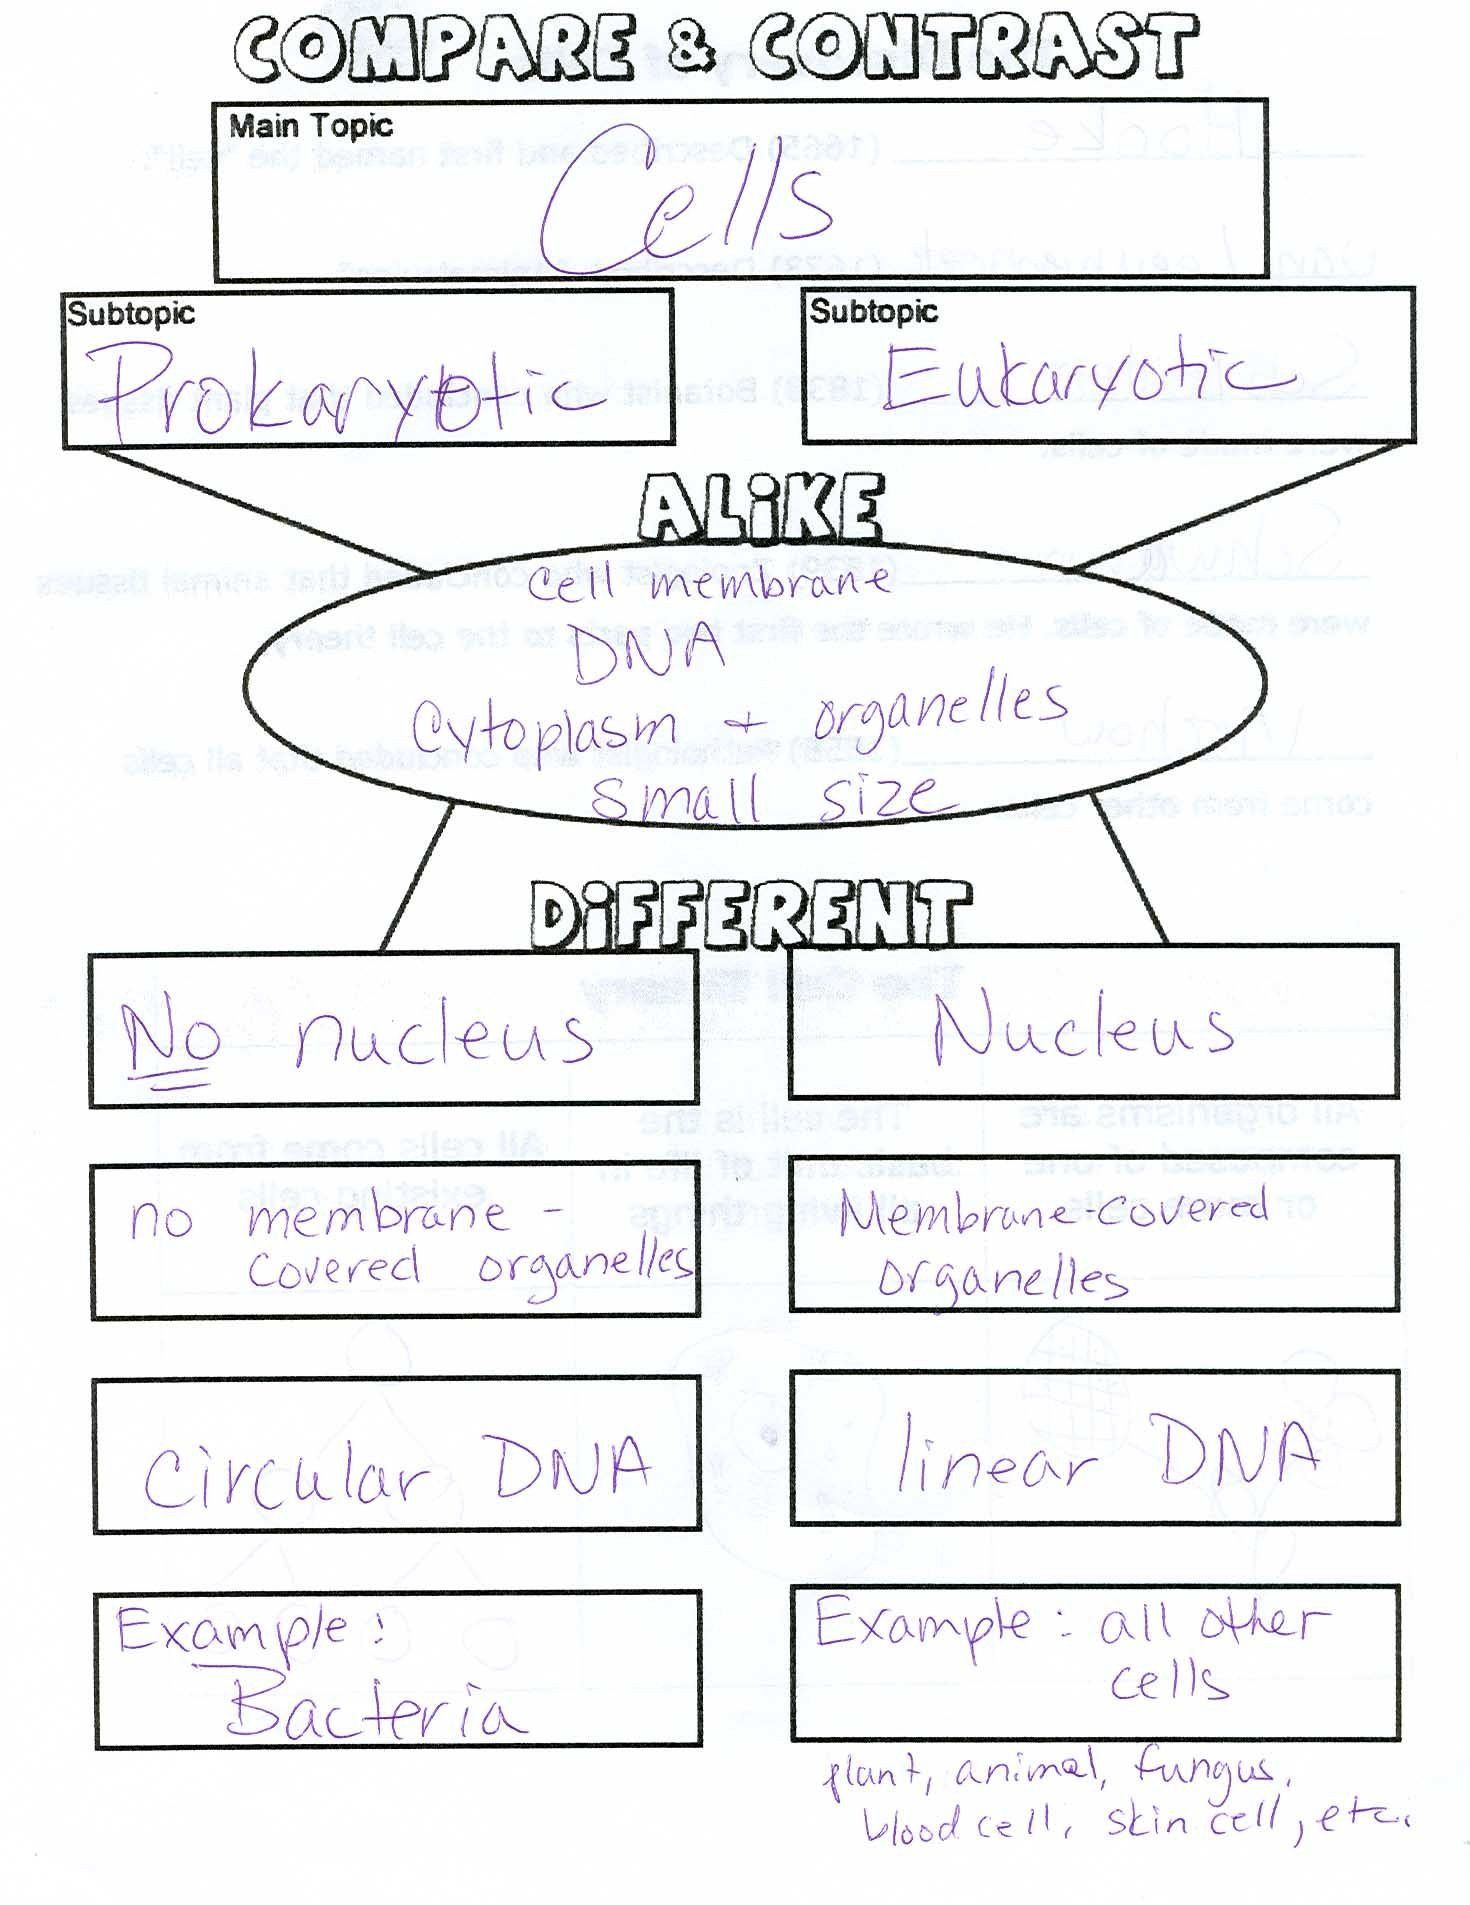 COMPARE & CONTRAST
Main Topic
Cells
Subtopic
Prokaryotic
Subtopic
Eukaryotic
ALiKE
cell membrane
DNA
Cytoplasm + organelles
Small size
DiFFERENT
No nucleus
Nucleus
no membrane -
covered organelles
Membrane-covered
organelles
circular DNA
linear DNA
Example:
Bacteria
Example: all other
cells
plant, animal, fungus,
blood cell, skin cell, etc.